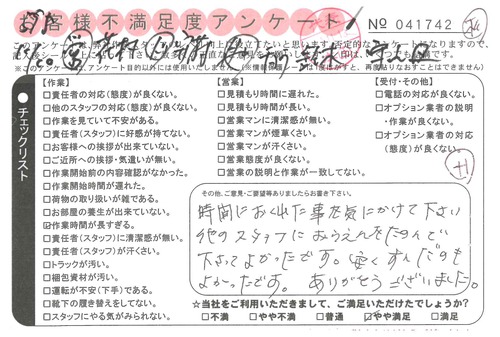 お客様不満足度アンケート
No 041742
【作業】
□責任者の対応(態度)が良くない。
□他のスタッフの対応(態度)が良くない。
□作業を見ていて不安がある。
□責任者(スタッフ)に好感が持てない。
□お客様への挨拶が出来ていない。
□ご近所への挨拶・気遣いが無い。
□作業開始前の内容確認がなかった。
□作業開始時間が遅れた。
□荷物の取り扱いが雑である。
□お部屋の養生が出来ていない。
☑作業時間が長すぎる。
□責任者(スタッフ)に清潔感が無い。
□責任者(スタッフ)が汗くさい。
□トラックが汚い。
□梱包資材が汚い。
□運転が不安(下手)である。
□靴下の履き替えをしてない。
□スタッフにやる気がみられない。
【営業】
□見積もり時間に遅れた。
□見積もり時間が長い。
□営業マンに清潔感が無い。
□営業マンが煙草くさい。
□営業マンが汗くさい。
□営業態度が良くない。
□営業の説明と作業が一致してない。
【受付・その他】
□電話の対応が良くない。
□オプション業者の説明
・作業が良くない。
□オプション業者の対応
(態度)が良くない。
チェックリスト
その他、ご意見・ご要望等ありましたらお書き下さい。
時間におくれた事を気にかけて下さい
他のスタッフにおうえんをたのんで
下さってよかったです。安くすんだのも
よかったです。ありがとうございました。
☆当社をご利用いただきまして、ご満足いただけたでしょうか?
□不満 □やや不満 □普通 ☑やや満足 □満足